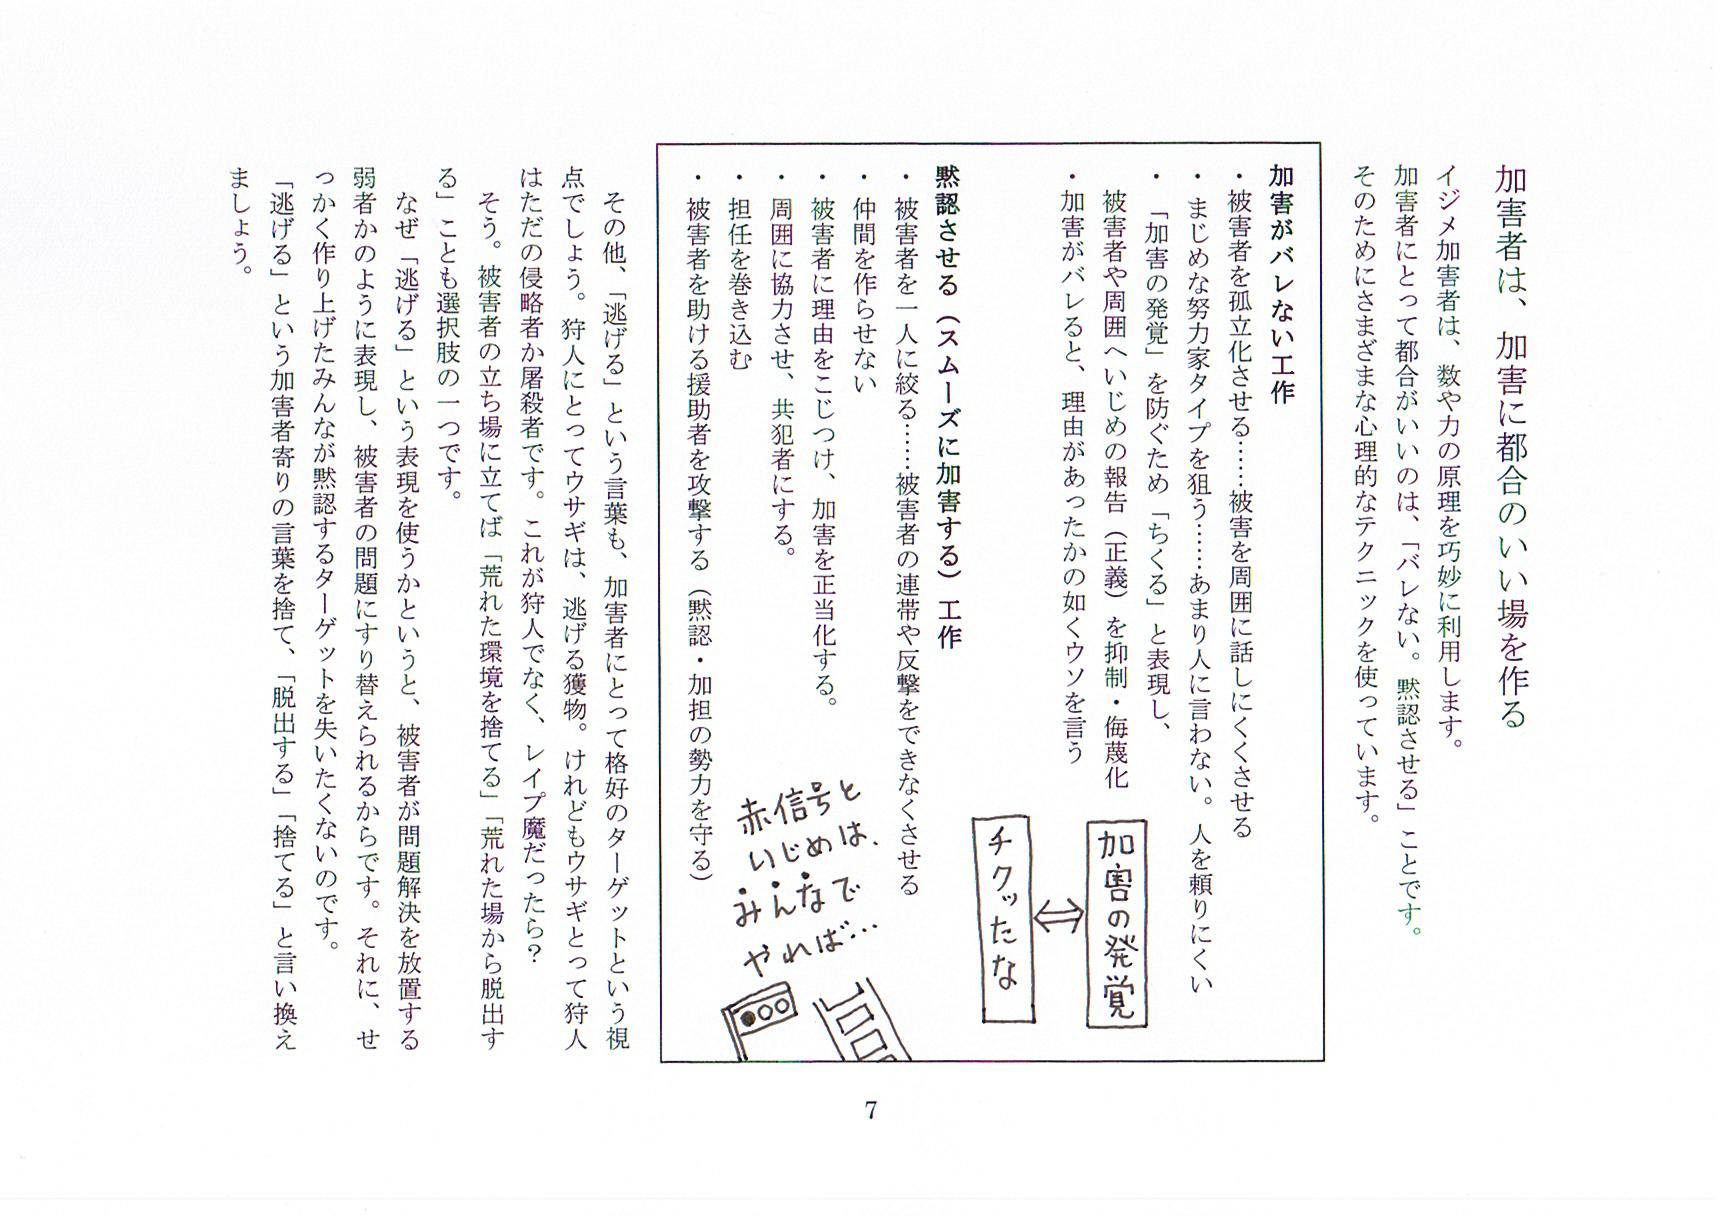 加害者は、加害に都合のいい場を作る
イジメ加害者は、数や力の原理を巧妙に利用します。
加害者にとって都合がいいのは、「バレない。黙認させる」ことです。
そのためにさまざまな心理的なテクニックを使っています。
加害がバレない工作
・被害者を孤立化させる……被害を周囲に話しにくくさせる
・まじめな努力家タイプを狙う……あまり人に言わない。人を頼りにくい
・「加害の発覚」を防ぐため「ちくる」と表現し、
被害者や周囲へいじめの報告（正義）を抑制・侮蔑化
・加害がバレると、理由があったかの如くウソを言う
加害の発覚
⇔
チクッたな
黙認させる（スムーズに加害する）工作
・被害者を一人に絞る……被害者の連帯や反撃をできなくさせる
・仲間を作らせない
・被害者に理由をこじつけ、加害を正当化する。
・周囲に協力させ、共犯者にする。
・担任を巻き込む
・被害者を助ける援助者を攻撃する（黙認・加担の勢力を守る）
赤信号と
いじめは、
みんなで
やれば…
その他、「逃げる」という言葉も、加害者にとって格好のターゲットという視
点でしょう。狩人にとってウサギは、逃げる獲物。けれどもウサギとって狩人
はただの侵略者か屠殺者です。これが狩人でなく、レイプ魔だったら？
そう。被害者の立ち場に立てば「荒れた環境を捨てる」「荒れた場から脱出す
る」ことも選択肢の一つです。
なぜ「逃げる」という表現を使うかというと、被害者が問題解決を放置する
弱者かのように表現し、被害者の問題にすり替えられるからです。それに、せ
っかく作り上げたみんなが黙認するターゲットを失いたくないのです。
「逃げる」という加害者寄りの言葉を捨て、「脱出する」「捨てる」と言い換え
ましょう。
7